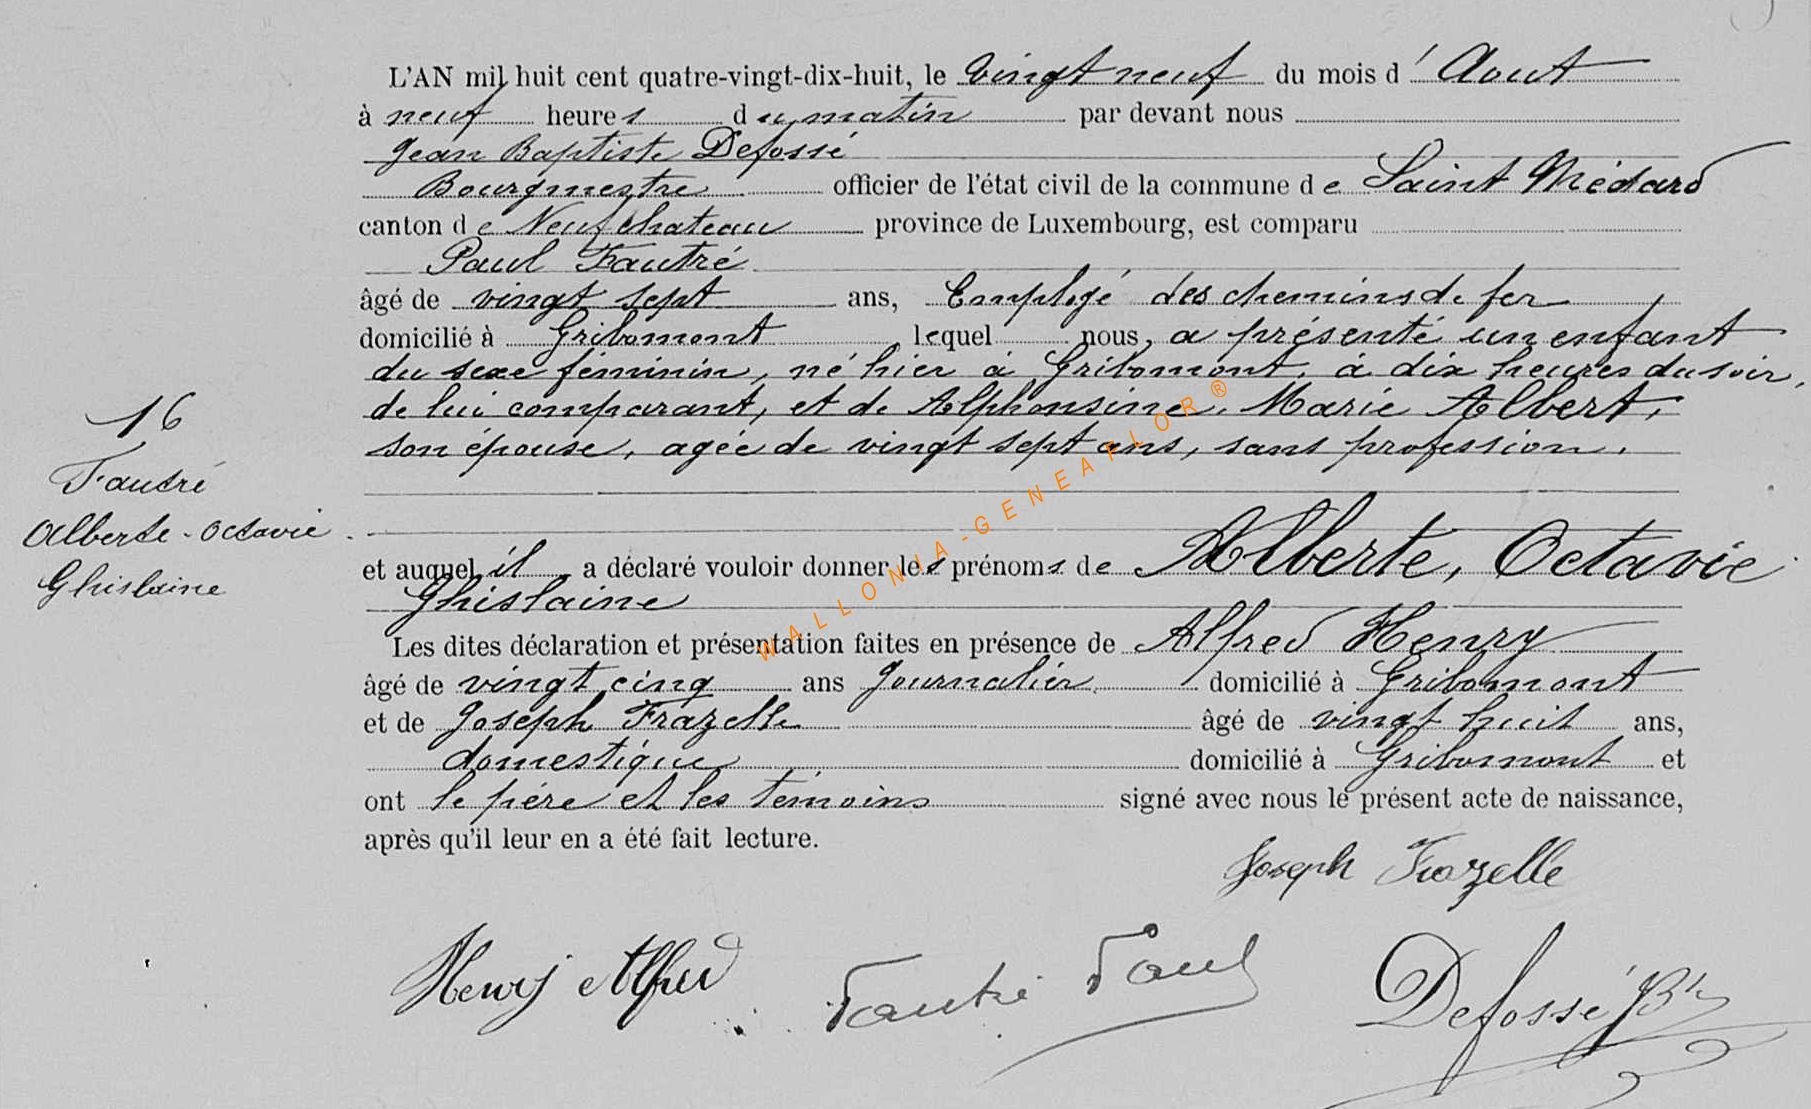 L'AN mil huit cent quatre-vingt-dix-huit, le vingt neuf du mois d'Aout
à neuf heures du matin par devant nous
Jean Baptiste Defossé
Bourgmestre officier de l'état civil de la commune de Saint Médard
canton de Neufchateau province de Luxembourg, est comparu
Paul Fautré
âgé de vingt sept ans, Employé des chemins de fer
domicilié à Gribomont lequel nous, a présenté un enfant
du sexe féminin, né hier à Gribomont, à dix heures du soir,
de lui comparant, et de Alphonsine, Marie Albert,
son épouse, agée de vingt sept ans, sans profession.
16
Fautré
Alberte-Octavie
Ghislaine
et auquel il a déclaré vouloir donner les prénoms de Alberte, Octavie
Ghislaine
Les dites déclaration et présentation faites en présence de Alfred Henry
âgé de vingt cinq ans Journalier domicilié à Gribomont
et de Joseph Frazelle âgé de vingt huit ans,
domestique domicilié à Gribomont et
ont le père et les témoins signé avec nous le présent acte de naissance,
après qu'il leur en a été fait lecture.
Joseph Frazelle
Henry Alfred
Fautré Paul
Defossé JBte
WALLONIA-GENEAFLOR®